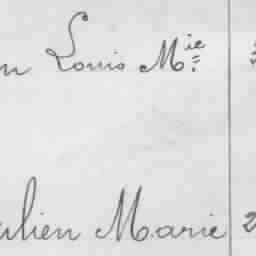 n Louis Mie
ulien Marie 2